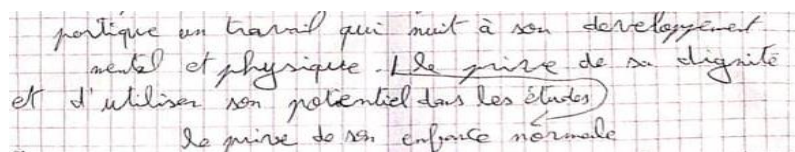 partique un travail qui nuit à son developpement
mental et physique. Le prive de sa dignité
et d'utiliser son potentiel dans les études
le prive de son enfance normale